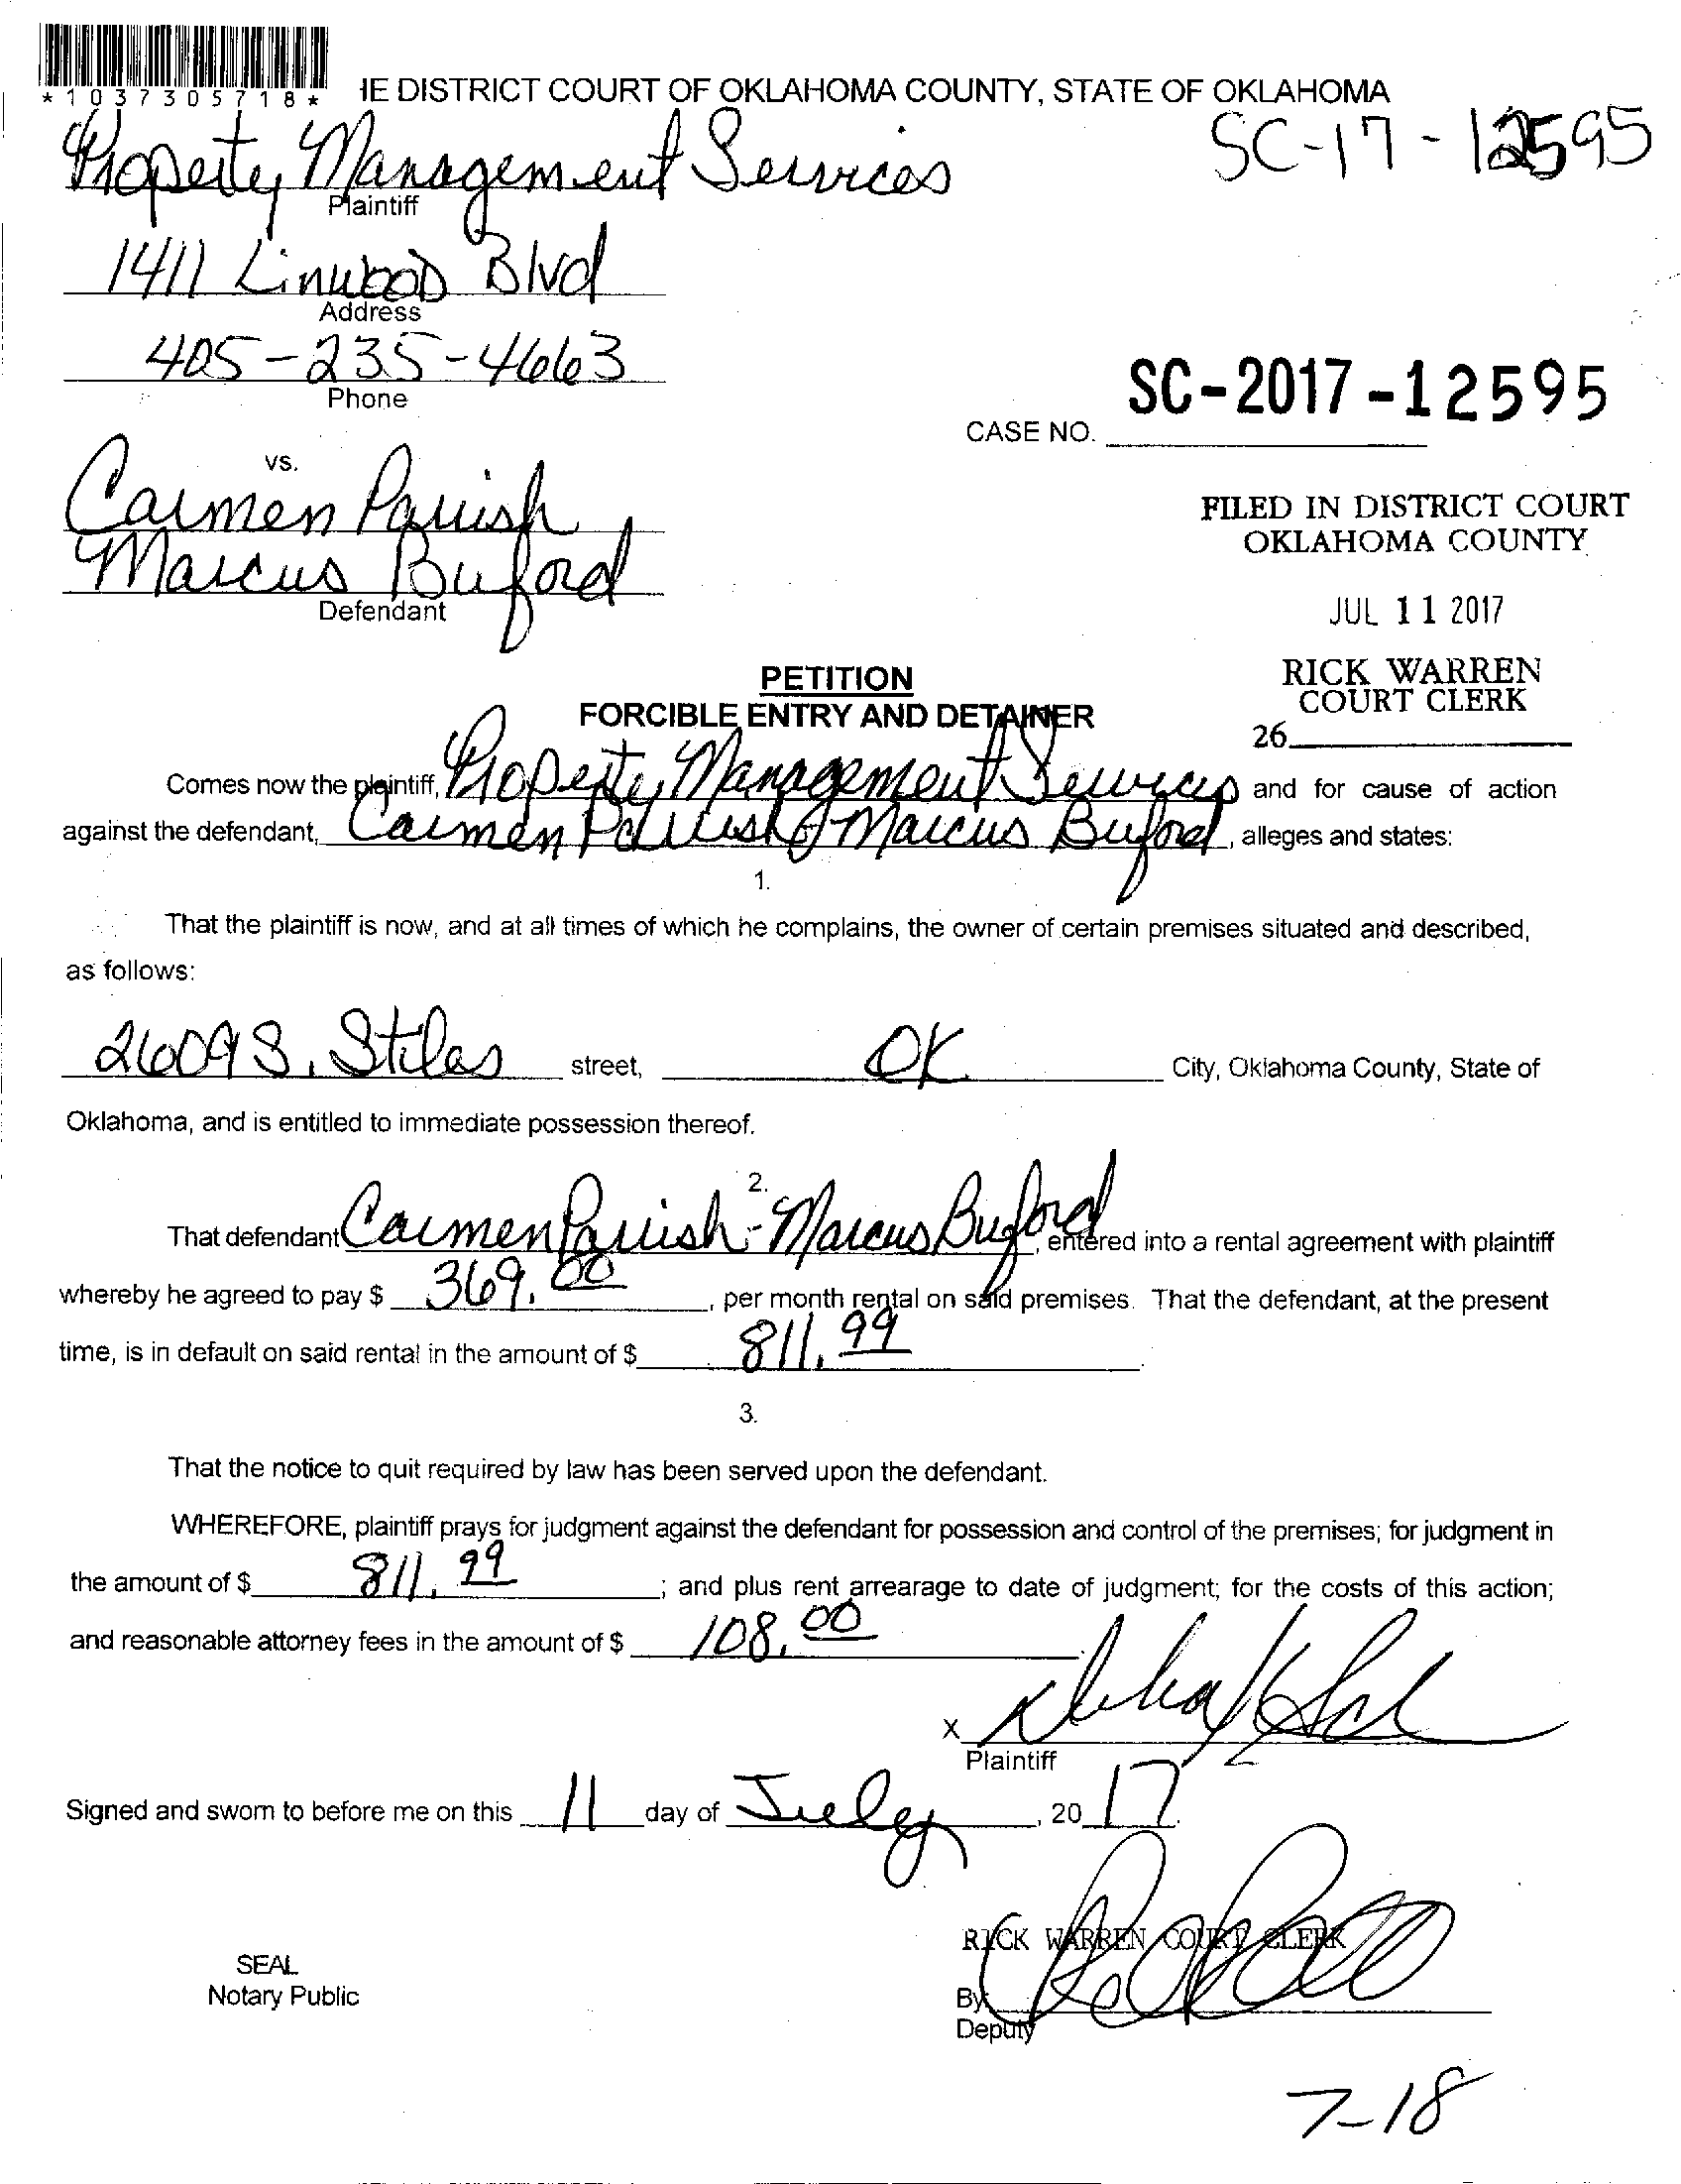 *1037305718*
IE DISTRICT COURT OF OKLAHOMA COUNTY, STATE OF OKLAHOMA
Property Management Services
SC-17-12595
Plaintiff
1411 Linwood Blvd
Address
405-235-4663
Phone
SC-2017-12595
CASE NO.
vs.
Carmen Parrish
Marcus Buford
Defendant
FILED IN DISTRICT COURT
OKLAHOMA COUNTY
JUL 11 2017
RICK WARREN
COURT CLERK
26
PETITION
FORCIBLE ENTRY AND DETAINER
Comes now the plaintiff, Property Management Services and for cause of action
against the defendant, Carmen Parrish & Marcus Buford, alleges and states:
1.
That the plaintiff is now, and at all times of which he complains, the owner of certain premises situated and described,
as follows:
2609 S. Stiles street, OK City, Oklahoma County, State of
Oklahoma, and is entitled to immediate possession thereof.
2.
That defendant Carmen Parrish - Marcus Buford, entered into a rental agreement with plaintiff
whereby he agreed to pay $ 369.00, per month rental on said premises. That the defendant, at the present
time, is in default on said rental in the amount of $ 811.99.
3.
That the notice to quit required by law has been served upon the defendant.
WHEREFORE, plaintiff prays for judgment against the defendant for possession and control of the premises; for judgment in
the amount of $ 811.99; and plus rent arrearage to date of judgment; for the costs of this action;
and reasonable attorney fees in the amount of $ 108.00
X
Plaintiff
Signed and sworn to before me on this 11 day of July, 2017.
RICK WARREN COURT CLERK
SEAL
Notary Public
By
Deputy
7-18